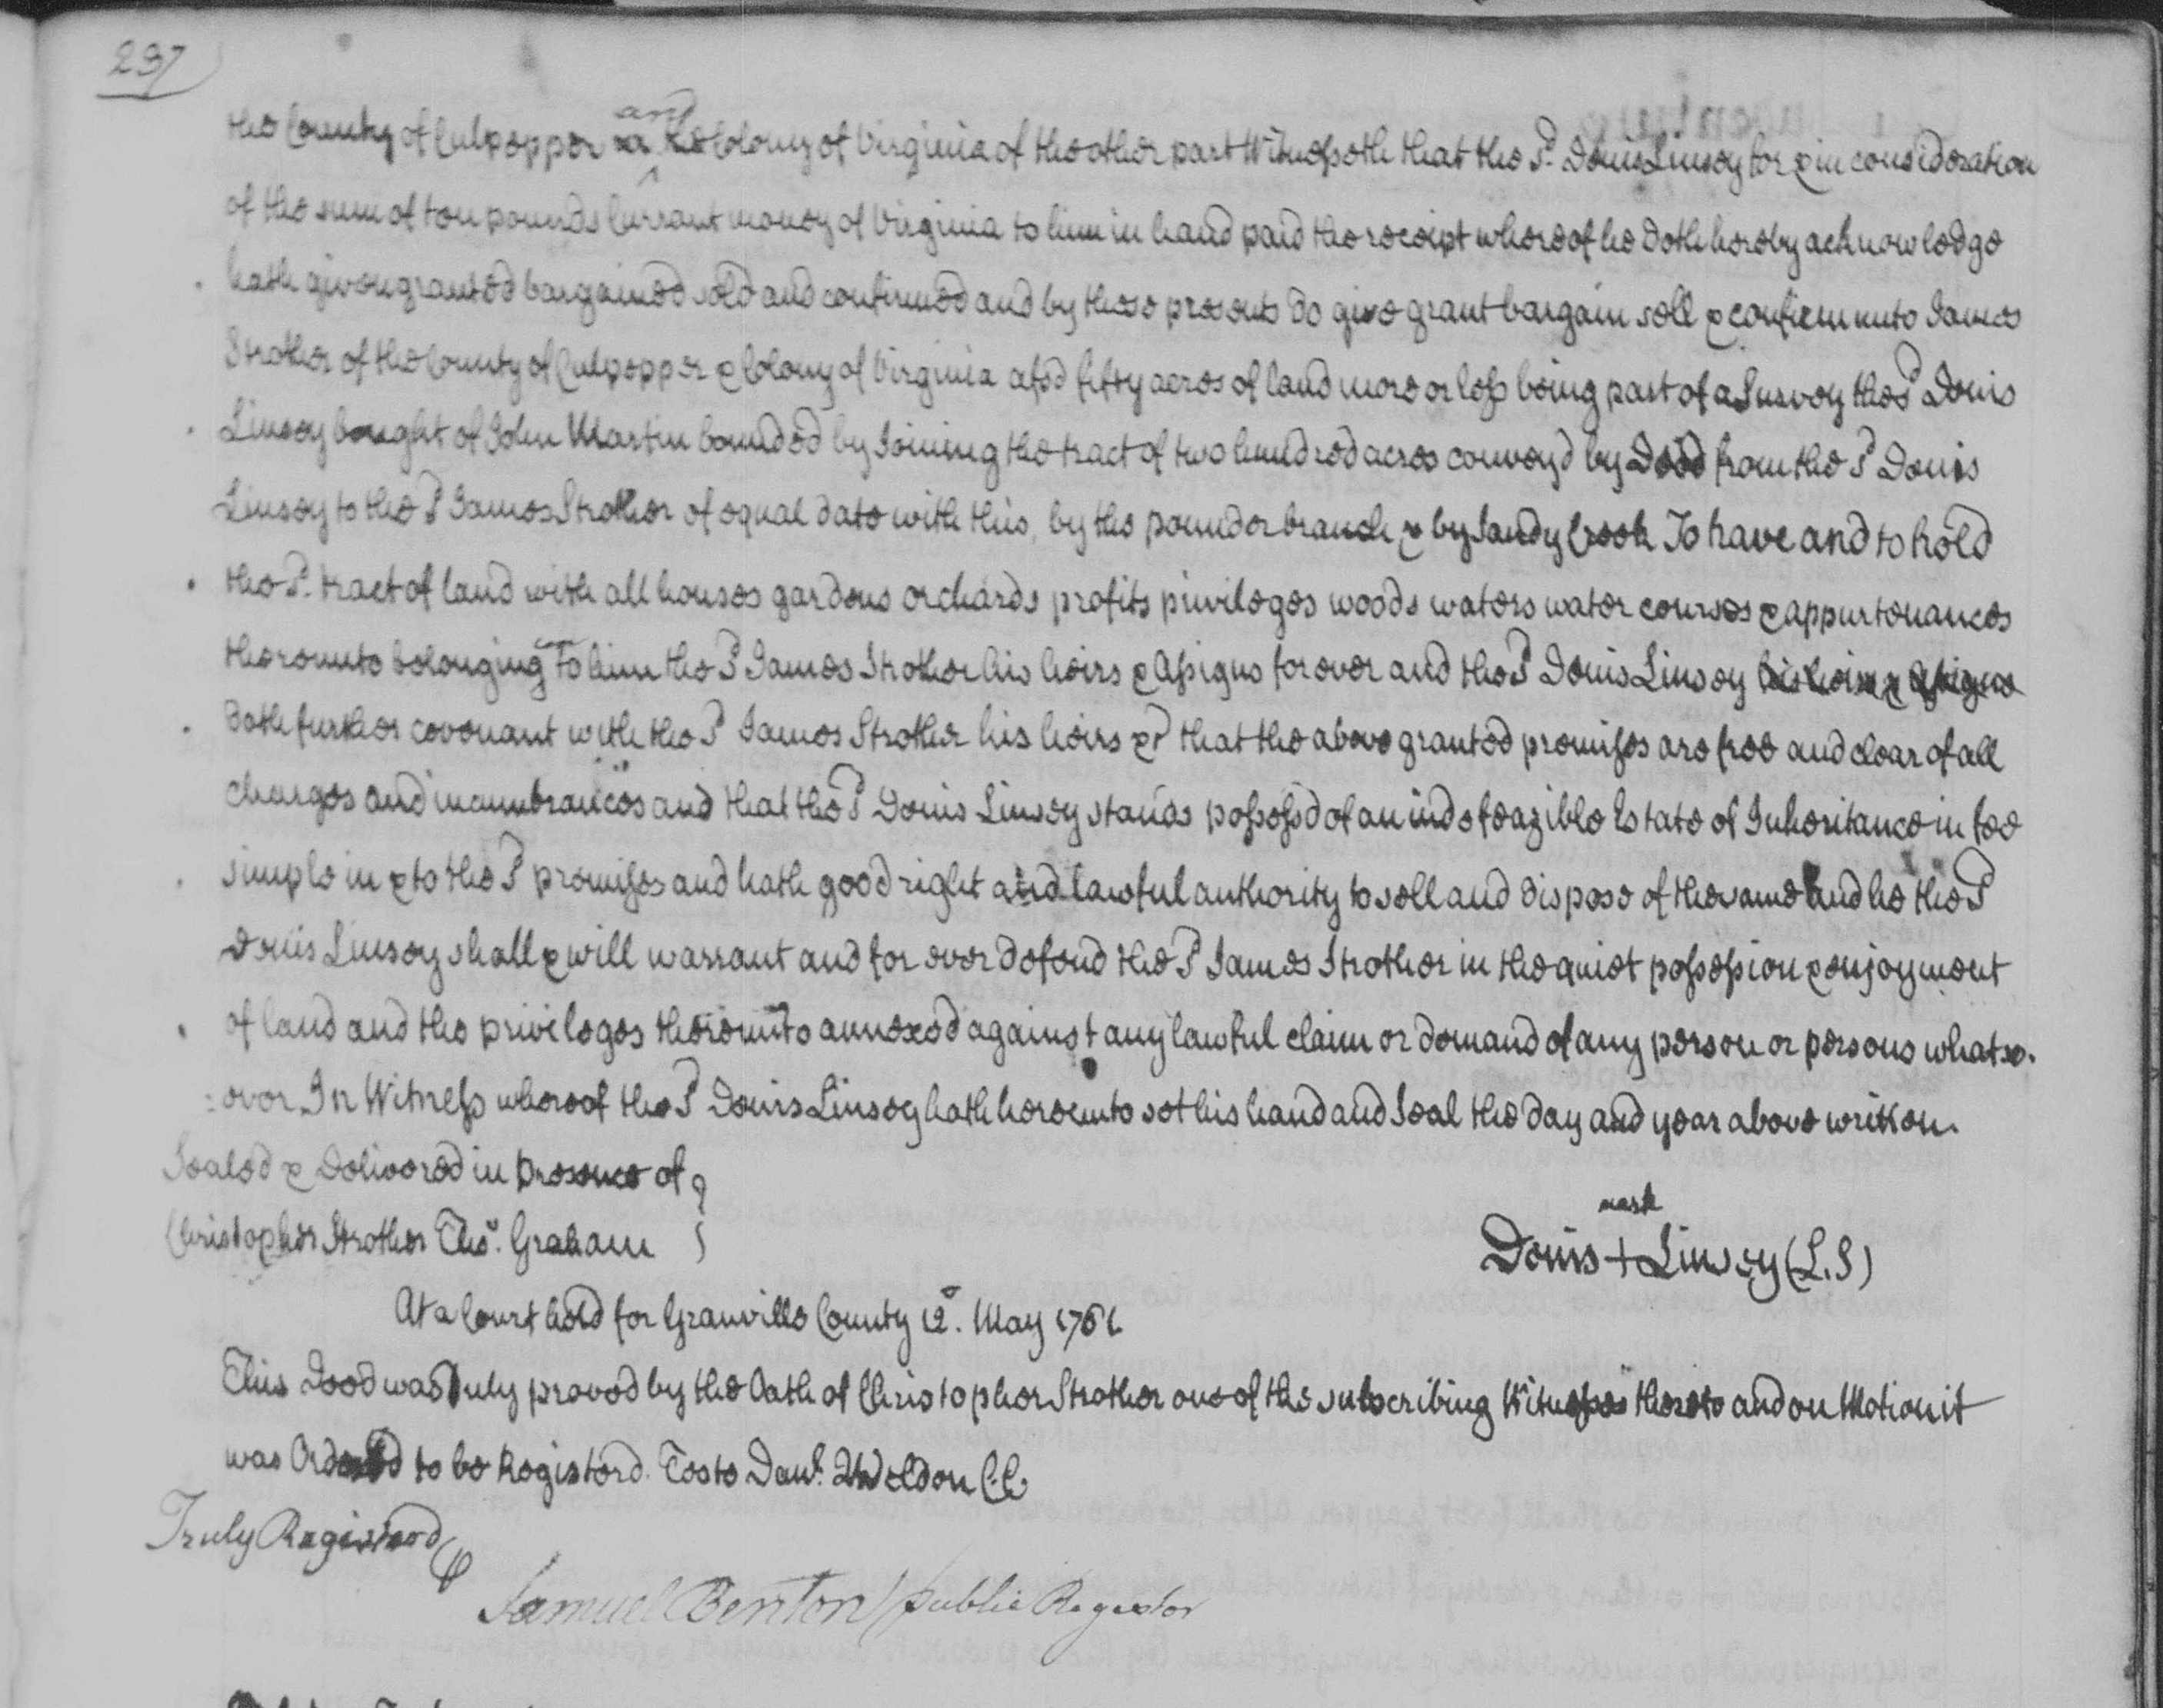 237
the County of Culpepper and the Colony of Virginia of the other part Witnesseth that the Sd. Denis Linsey for & in consideration
of the sum of ten pounds Currant money of Virginia to him in hand paid the receipt whereof he doth hereby acknowledge
hath given granted bargained sold and confirmed and by these presents do give grant bargain sell & confirm unto James
Strother of the County of Culpepper & Colony of Virginia afsd fifty acres of land more or less being part of a Survey the Sd Denis
Linsey bought of John Martin bounded by Joining the tract of two hundred acres convey'd by Deed from the Sd Denis
Linsey to the Sd James Strother of equal date with this, by the pounder branch & by Sandy Creek To have and to hold
the Sd. tract of land with all houses gardens orchards profits privileges woods waters water courses & appurtenances
thereunto belonging To him the Sd James Strother his heirs & Assigns forever and the Sd Denis Linsey his heirs & Assigns
doth further covenant with the Sd James Strother his heirs &c that the above granted premisses are free and clear of all
charges and incumbrances and that the Sd Denis Linsey stands possess'd of an indefeazible Estate of Inheritance in fee
simple in & to the Sd premisses and hath good right and lawful authority to sell and dispose of the same And he the Sd
Denis Linsey shall & will warrant and for ever defend the Sd James Strother in the quiet possession & enjoyment
of land and the privileges thereunto annexed against any lawful claim or demand of any person or persons whatso-
:ever In Witness whereof the Sd Denis Linsey hath hereunto set his hand and Seal the day and year above written.
Sealed & Delivered in presence of
Christopher Strother Thos. Graham
mark
Denis + Linsey (L.S)
At a Court held for Granville County 12. May 1761
This Deed was Duly proved by the Oath of Christopher Strother one of the subscribing Witnesses thereto and on Motion it
was Ordered to be Registerd. Teste Danl. Weldon C.C.
Truly Registerd
Samuel Benton public Register